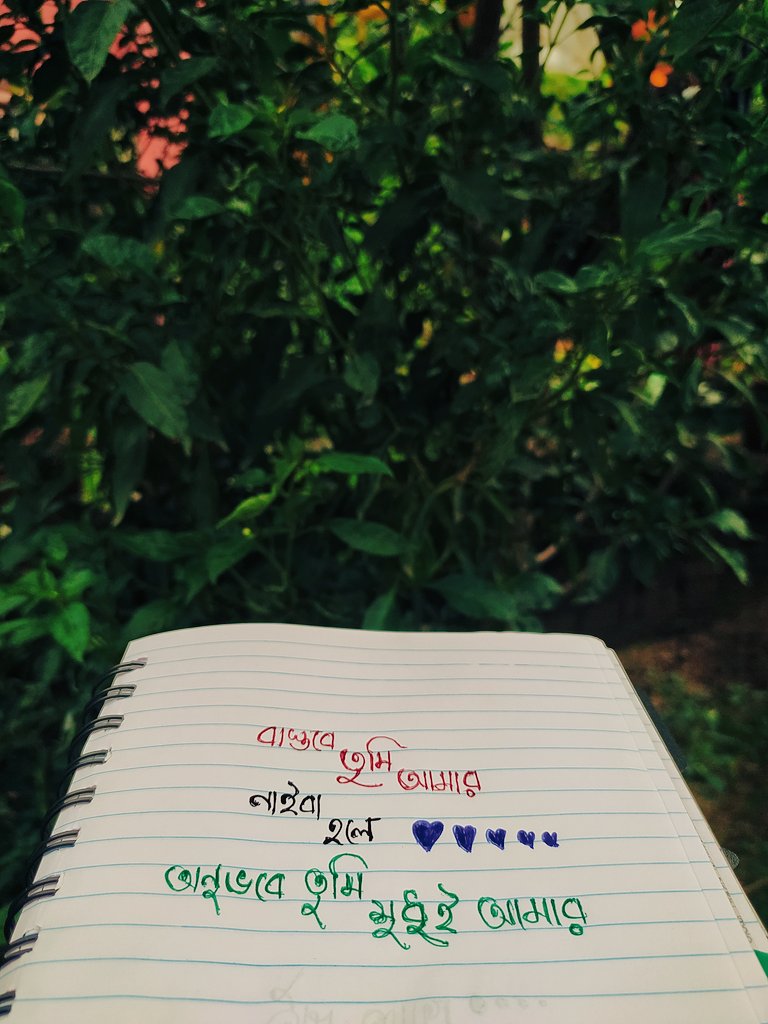 বাস্তবে তুমি আমার
নাইবা হলে
অনুভবে তুমি শুধুই আমার